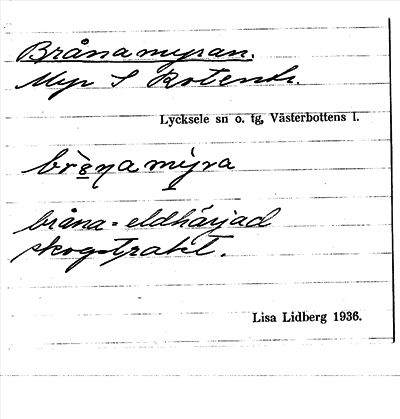 Brånamyran.
Myr S
Lycksele sn o. tg, Västerbottens l.
myra
bråna = eldhärjad
skogstrakt.
Lisa Lidberg 1936.